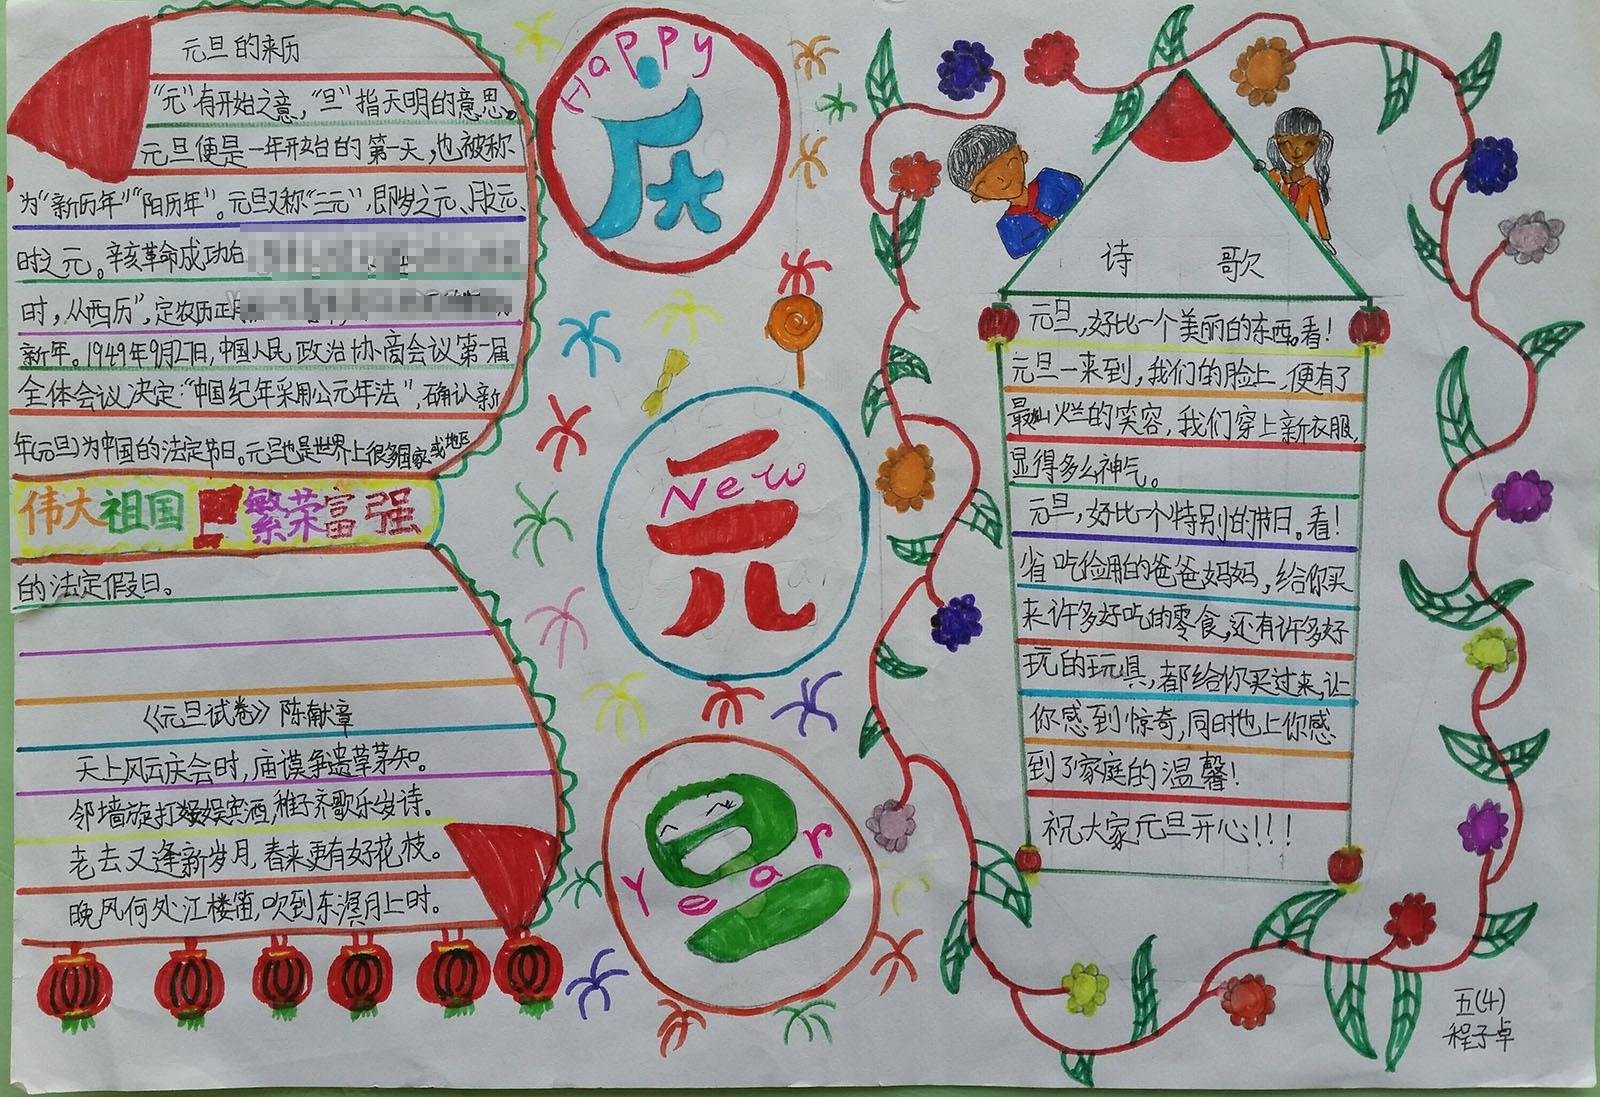 元旦的来历
"元"有开始之意，"旦"指天明的意思。
元旦便是一年开始的第一天，也被称
为"新历年""阳历年"。元旦又称"三元"，即岁之元、月之元、
时之元。辛亥革命成功
时，从西历"，定农历正月
新年。1949年9月27日，中国人民政治协商会议第一届
全体会议决定："中国纪年采用公元年法"，确认新
年(元旦)为中国的法定节日。元旦也是世界上很多国家或地区
伟大祖国 繁荣富强
的法定假日。
《元旦试卷》 陈献章
天上风云庆会时，庙谟争遗草茅知。
邻墙旋打娱宾酒，稚子齐歌乐岁诗。
老去又逢新岁月，春来更有好花枝。
晚风何处江楼笛，吹到东溟月上时。
Happy
庆
New
元
旦
Year
诗 歌
元旦，好比一个美丽的东西。看！
元旦一来到，我们的脸上，便有了
最灿烂的笑容，我们穿上新衣服，
显得多么神气。
元旦，好比一个特别的节日。看！
省吃俭用的爸爸妈妈，给你买
来许多好吃的零食，还有许多好
玩的玩具，都给你买过来，让
你感到惊奇，同时也上你感
到了家庭的温馨！
祝大家元旦开心！！！
五(4)
程子卓